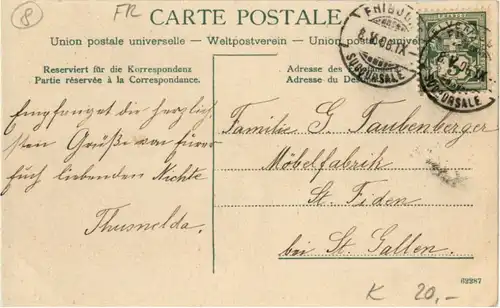 8
FR
CARTE POSTALE
Union postale universelle. – Weltpostverein – Union postale universelle
Reserviert für die Korrespondenz
Partie réservée à la Correspondance.
Adresse des
Adresse du
FRIBOURG
8.V.06.IX
SUCCURSALE
8.V.06.IX
SUCCURSALE
Empfanget die herzlich
sten Grüße von Eurer
Euch liebenden Nichte
Thusnelda.
Familie G. Taubenberger
Möbelfabrik
St. Fiden
bei St. Gallen.
62287
K 20,-